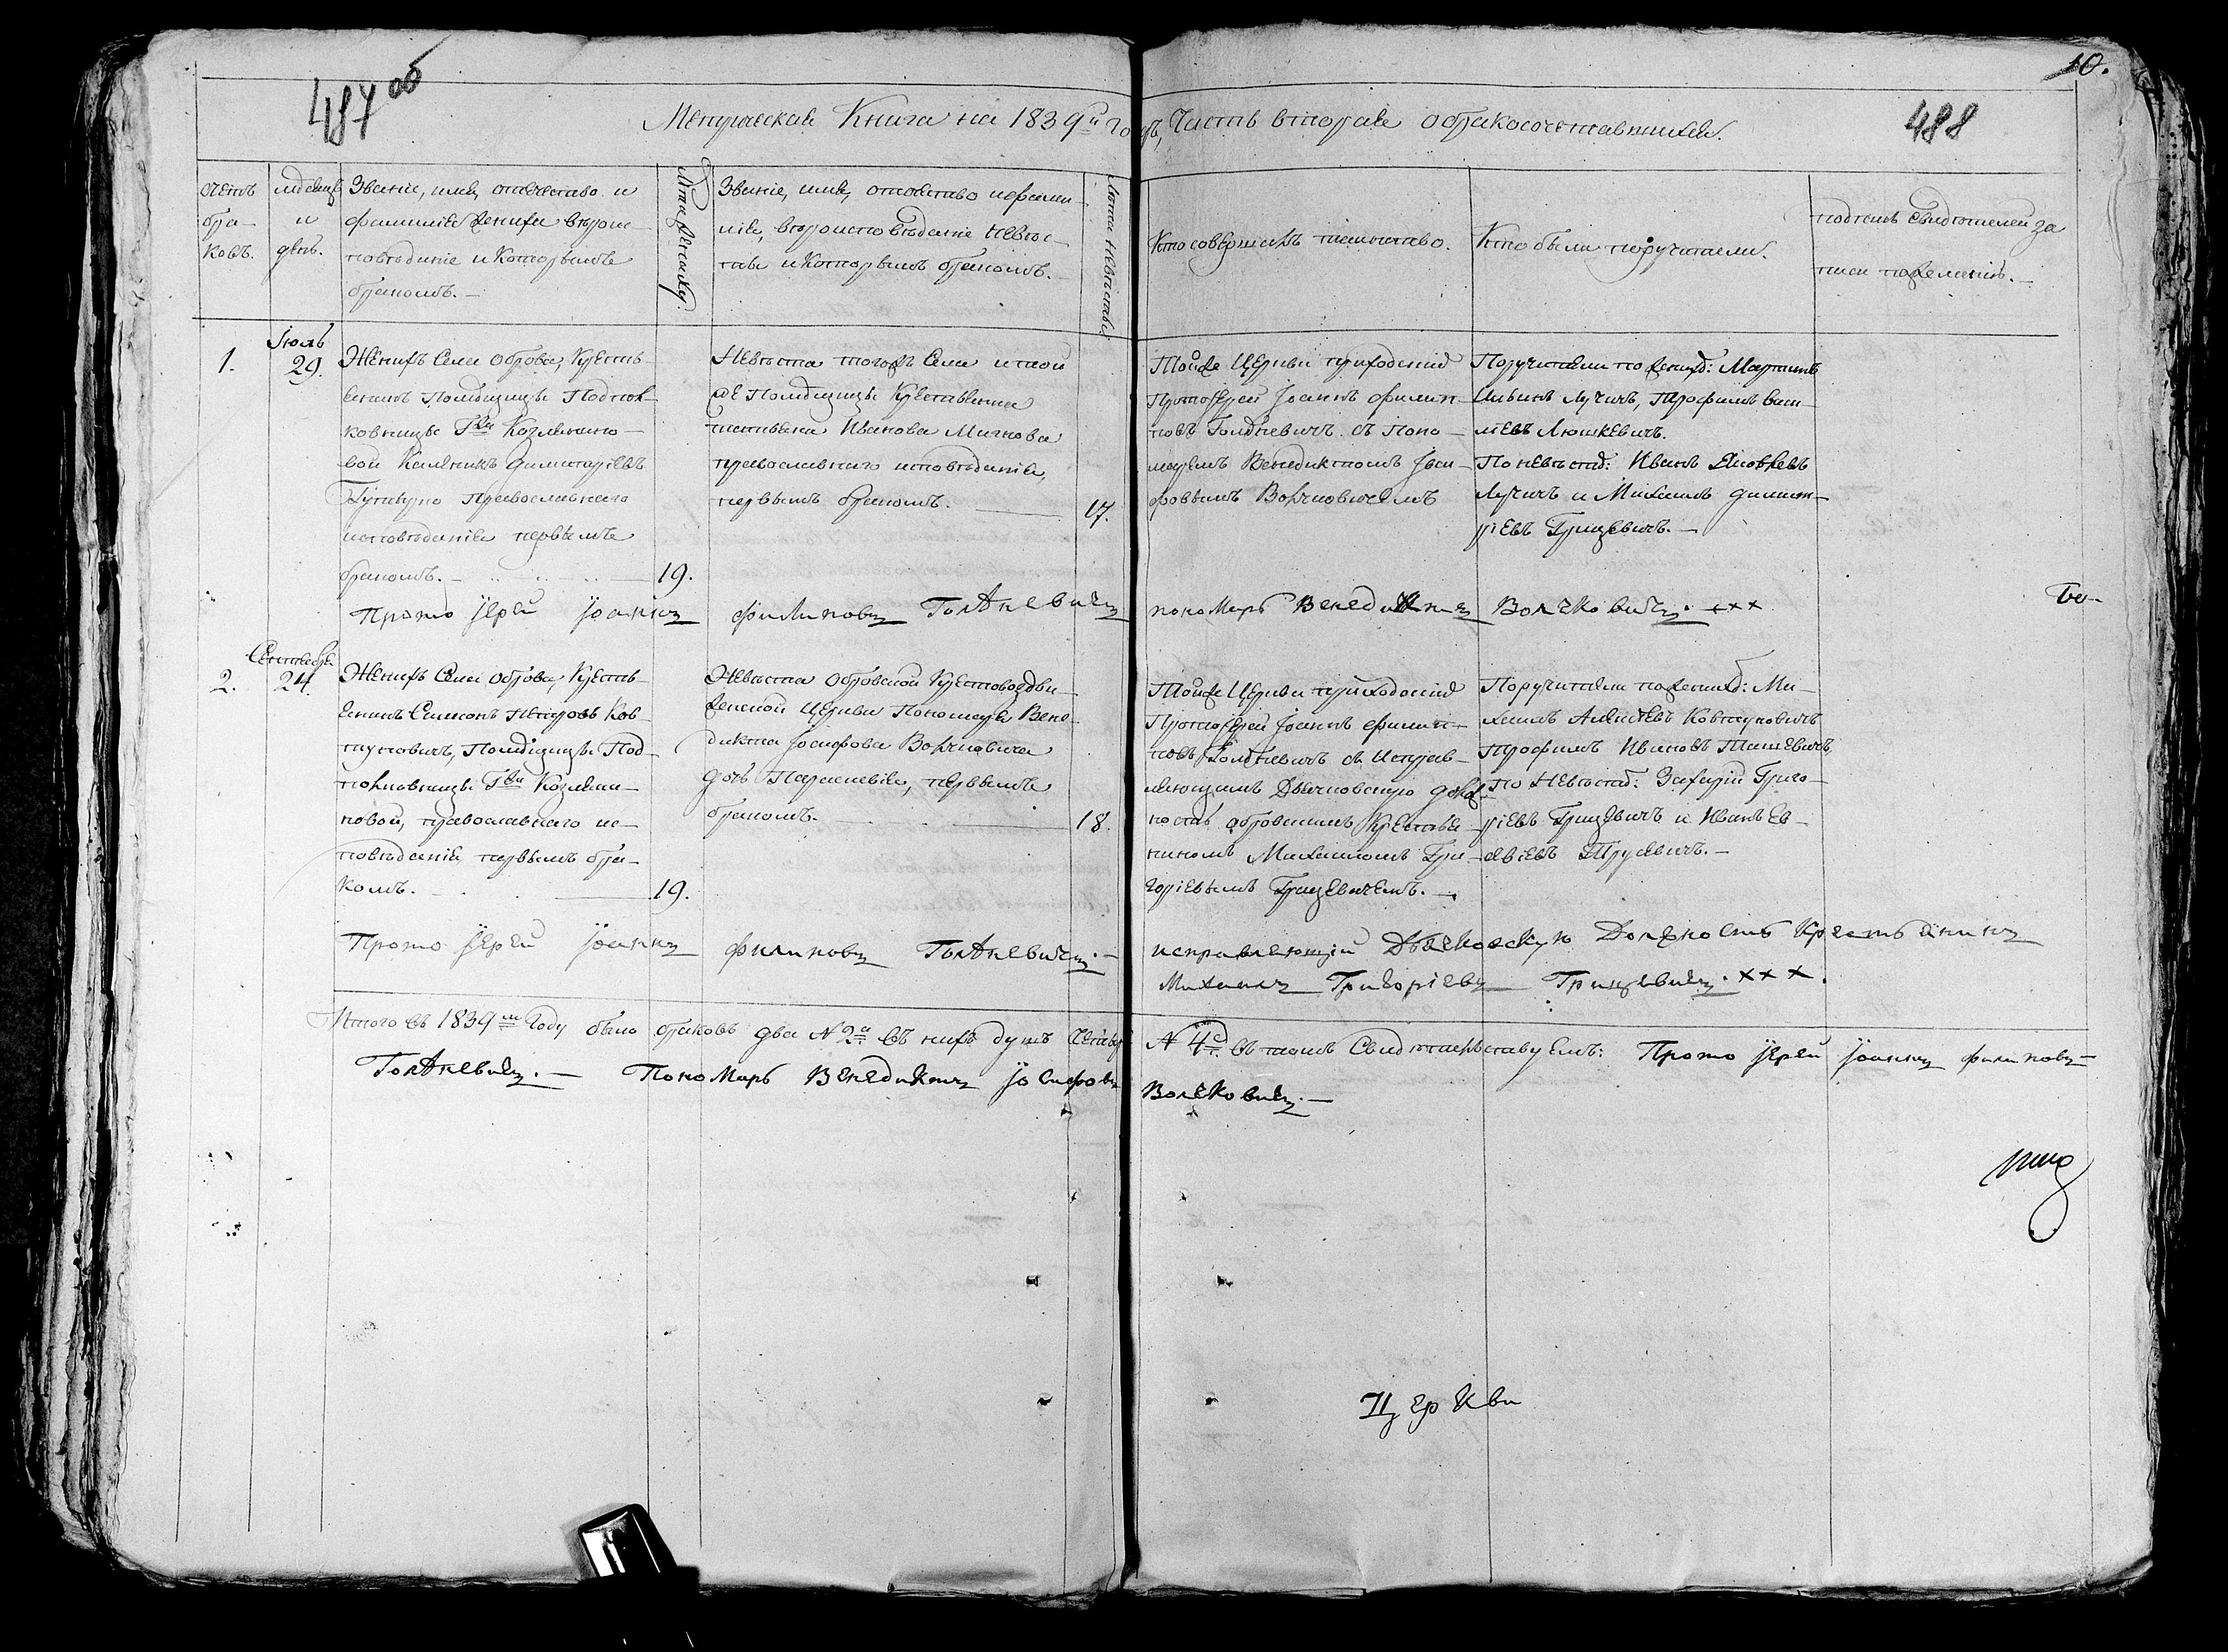 487 об
10.
Метрическая Книга на 1839й годъ, Часть вторая о бракосочетавшихся.
488
счетъ бра- ковъ.
мѣсяцъ и день.
Званіе, имя, отчество и
фамилія жениха, вѣроис-
повѣданіе и которымъ
бракомъ.—
Лѣта жениху.
Званіе, имя, отчество и фами-
лія, вѣроисповѣданіе невѣс-
ты и которымъ бракомъ.—
Лѣта невѣсты
Кто совершалъ таинство.
Кто были поручители.
подпись свидѣтелей за
писи по желанію.—
1.
Іюль
29.
Женихъ Села Оброва, Кресть-
янинъ Помѣщицы Подпол-
ковницы Гжи Козляино-
вой Димитріевъ
Православнаго
исповѣданія первымъ
бракомъ.— 19.
Невѣста тогожъ Села и той
же Помѣщицы Крестьянка
Иванова
православнаго исповѣданія,
первымъ бракомъ. — 17.
Тойже Церкви приходскій
Протоіерей Іоаннъ Филип-
повъ Голдневичъ съ Поно-
маремъ Венедиктомъ Іоси-
фовымъ Волчковичемъ
Поручители по женихѣ: Мартинъ
Лучичъ, Трофимъ Васи-
ліевъ Люшкевичъ.
По невѣстѣ: Иванъ Яковлевъ
Лучичъ и Михаилъ Димит-
ріевъ Грицевичъ.—
Прото Іерей Іоаннъ Филиповъ Голдневичъ
пономарь Венедиктъ Волчковичъ. +××
2.
Сентябрь
24.
Женихъ Села Оброва, Кресть-
янинъ Симонъ Петровъ Ков-
туновичъ, Помѣщицы Под-
полковницы Гжи Козляи-
новой, православнаго ис-
повѣданія, первымъ бра-
комъ.— 19.
Невѣста Обровской Крестовоздви-
женской Церкви Пономаря Вене-
дикта Іосифова Волчковича
дочь Параскевія, первымъ
бракомъ.— 18.
Тойже Церкви приходскій
Протоіерей Іоаннъ Филип-
повъ Голдневичъ съ исправ-
ляющимъ Дьячковскую долж-
ность обровскимъ Крестья-
ниномъ Михаиломъ Гри-
горіевымъ Грицевичемъ.—
Поручители по женихѣ: Ми-
хаилъ Алексѣевъ Ковтуновичъ
Трофимъ Ивановъ
По Невѣстѣ: Захарій Григо-
ріевъ Грицевичъ и Иванъ Ев-
Прусевичъ.—
Прото Іерей Іоаннъ Филиповъ Голдневичъ.—
исправляющій Дьячковскую Должность Крестьянинъ
Михаилъ Григоріевъ Грицевичъ. ×××.
Итого въ 1839м Году было браковъ два № 2й въ нихъ душъ четыре № 4й въ томъ Свидѣтельствуемъ: Прото Іерей Іоаннъ Филиповъ
Голдневичъ.— Пономарь Венедиктъ Іосифовъ Волчковичъ.—
Церкви